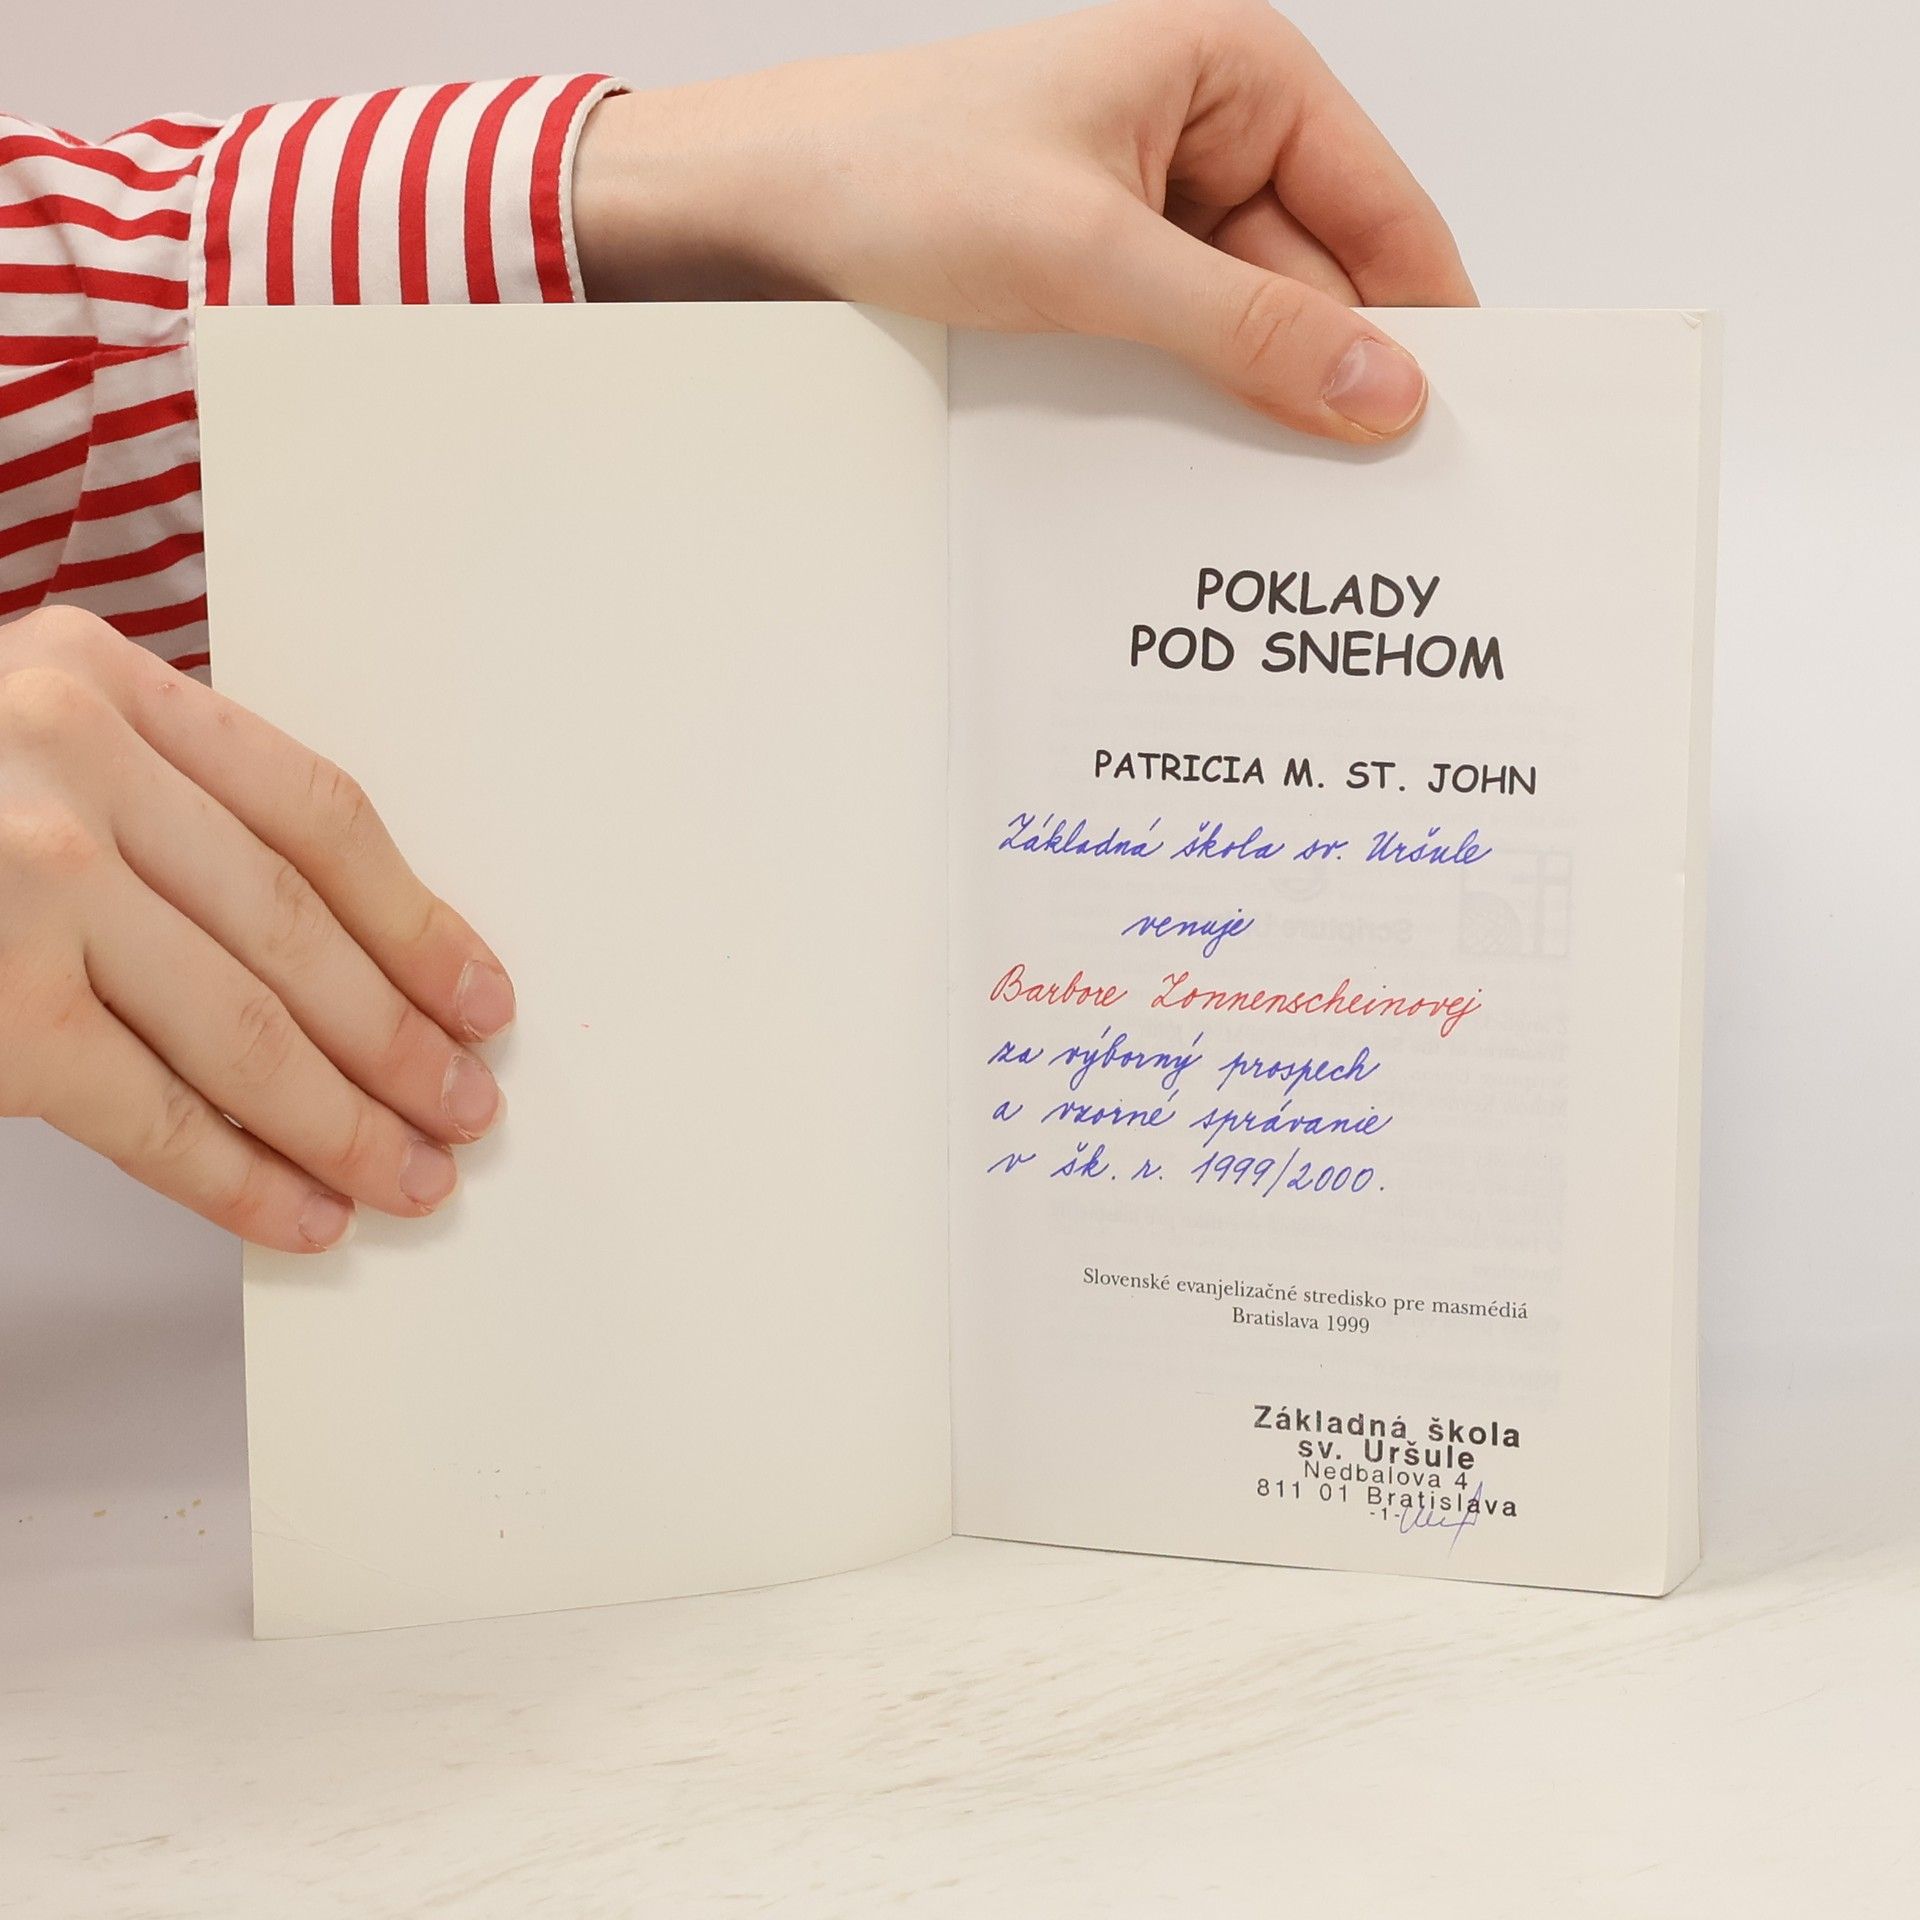 POKLADY
POD SNEHOM
PATRICIA M. ST. JOHN
Základná škola sv. Uršule
venuje
Barbore Zonnenscheinovej
za výborný prospech
a vzorné správanie
v šk. r. 1999/2000.
Slovenské evanjelizačné stredisko pre masmédiá
Bratislava 1999
Základná škola
sv. Uršule
Nedbalova 4
811 01 Bratislava
-1-